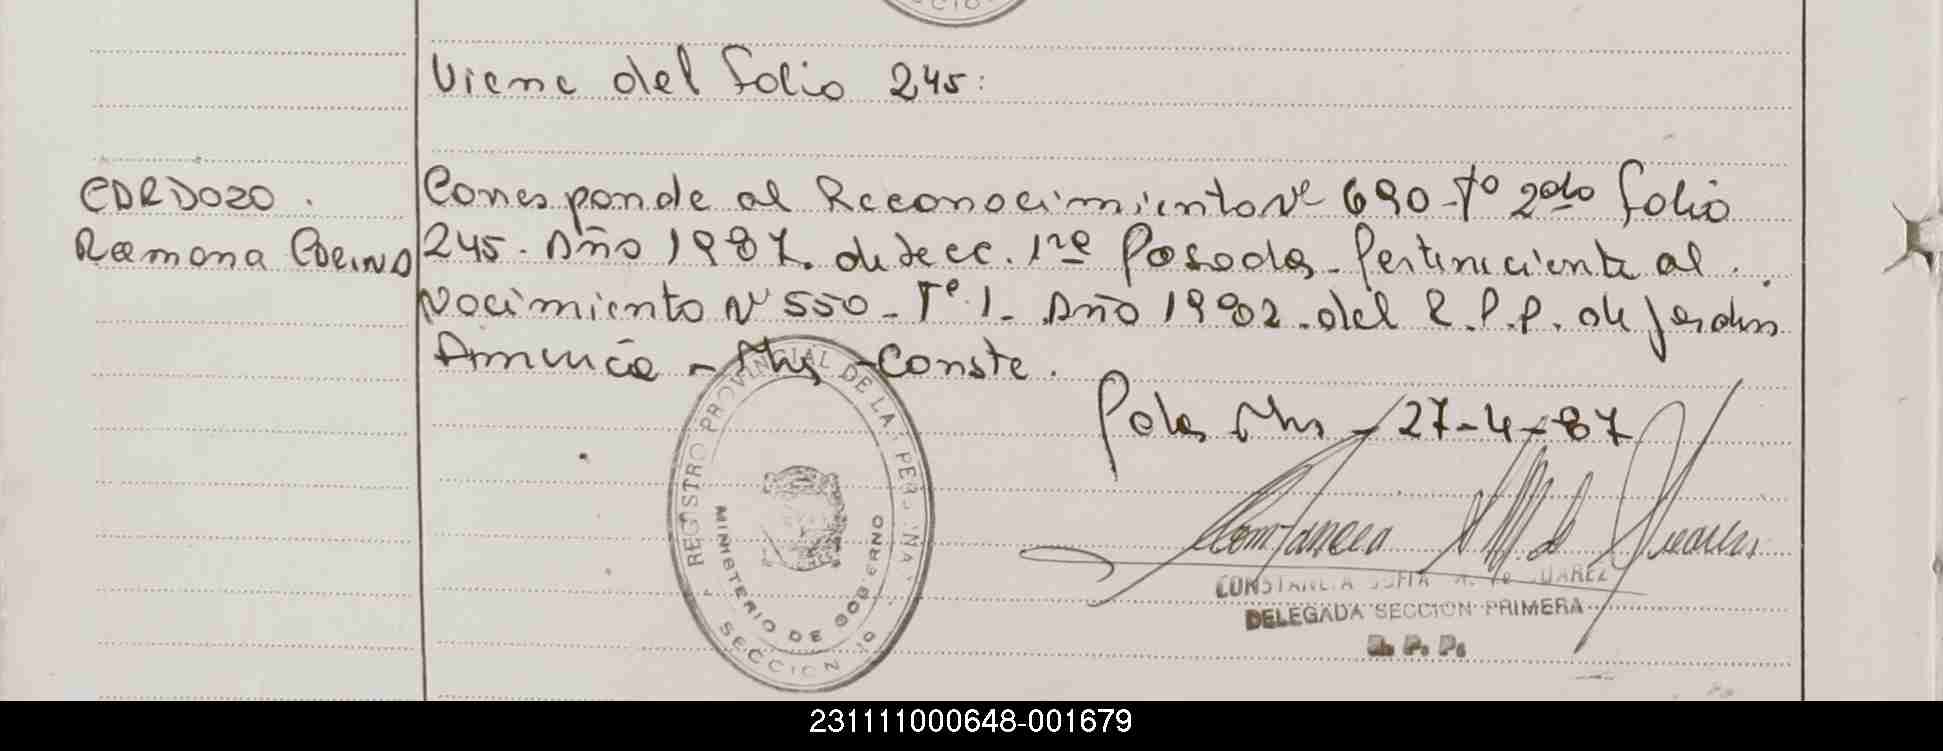 Viene del folio 245:
CARDOZO.
Ramona Corina
Corresponde al Reconocimiento Nº 690 - Tº 2do folio
245. Año 1987. de secc. 1ra Posadas - Perteneciente al
Nacimiento Nº 550 - Tº 1 - Año 1982. del R.P.P. de Jardin
America - Mnes - Conste.
Pdas Mns - 27-4-87
REGISTRO PROVINCIAL DE LA PERSONAS
MINISTERIO DE GOBIERNO
SECCION
Constancia S. M. de Suarez
CONSTANCIA SOFIA M. de SUAREZ
DELEGADA SECCION PRIMERA
R. P. P.
231111000648-001679